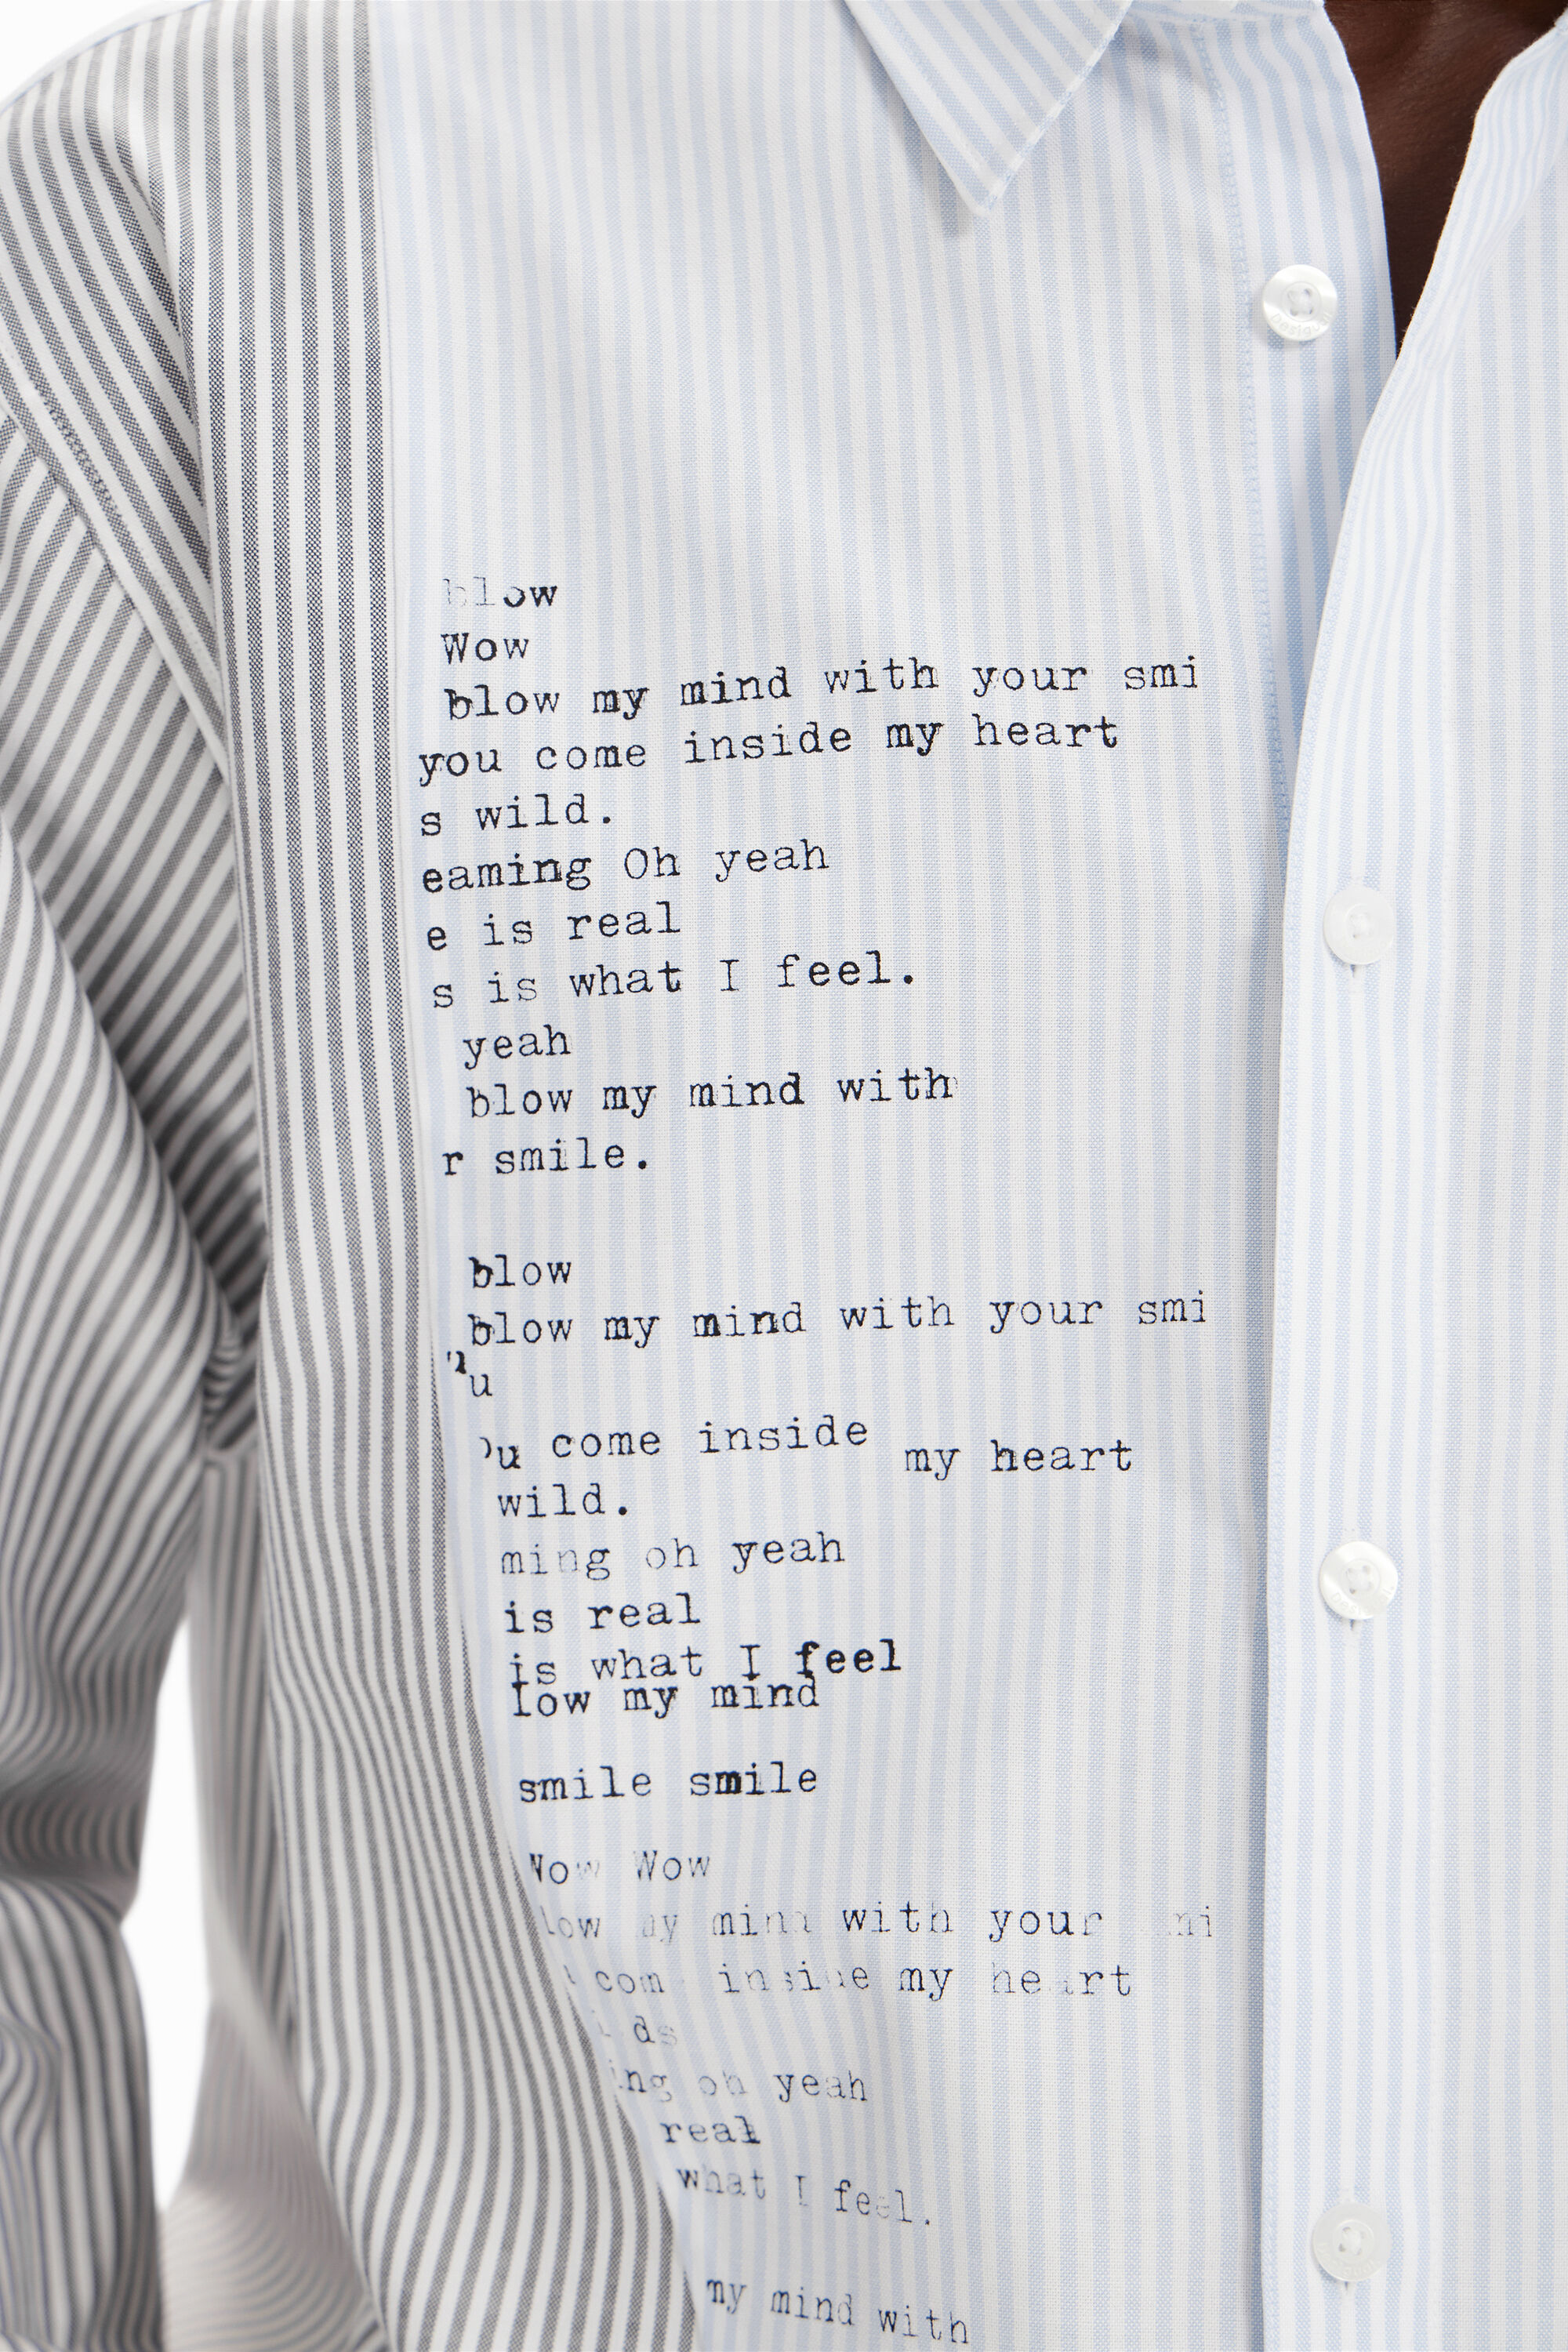 blow
Wow
blow my mind with your smi
you come inside my heart
s wild.
eaming Oh yeah
e is real
s is what I feel.
yeah
blow my mind with
r smile.
blow
blow my mind with your smi
u
ou come inside my heart
wild.
ming oh yeah
is real
is what I feel
low my mind
smile smile
Wow Wow
low my mind with your mi
com inside my heart
ds
ing oh yeah
real
what I feel.
my mind with